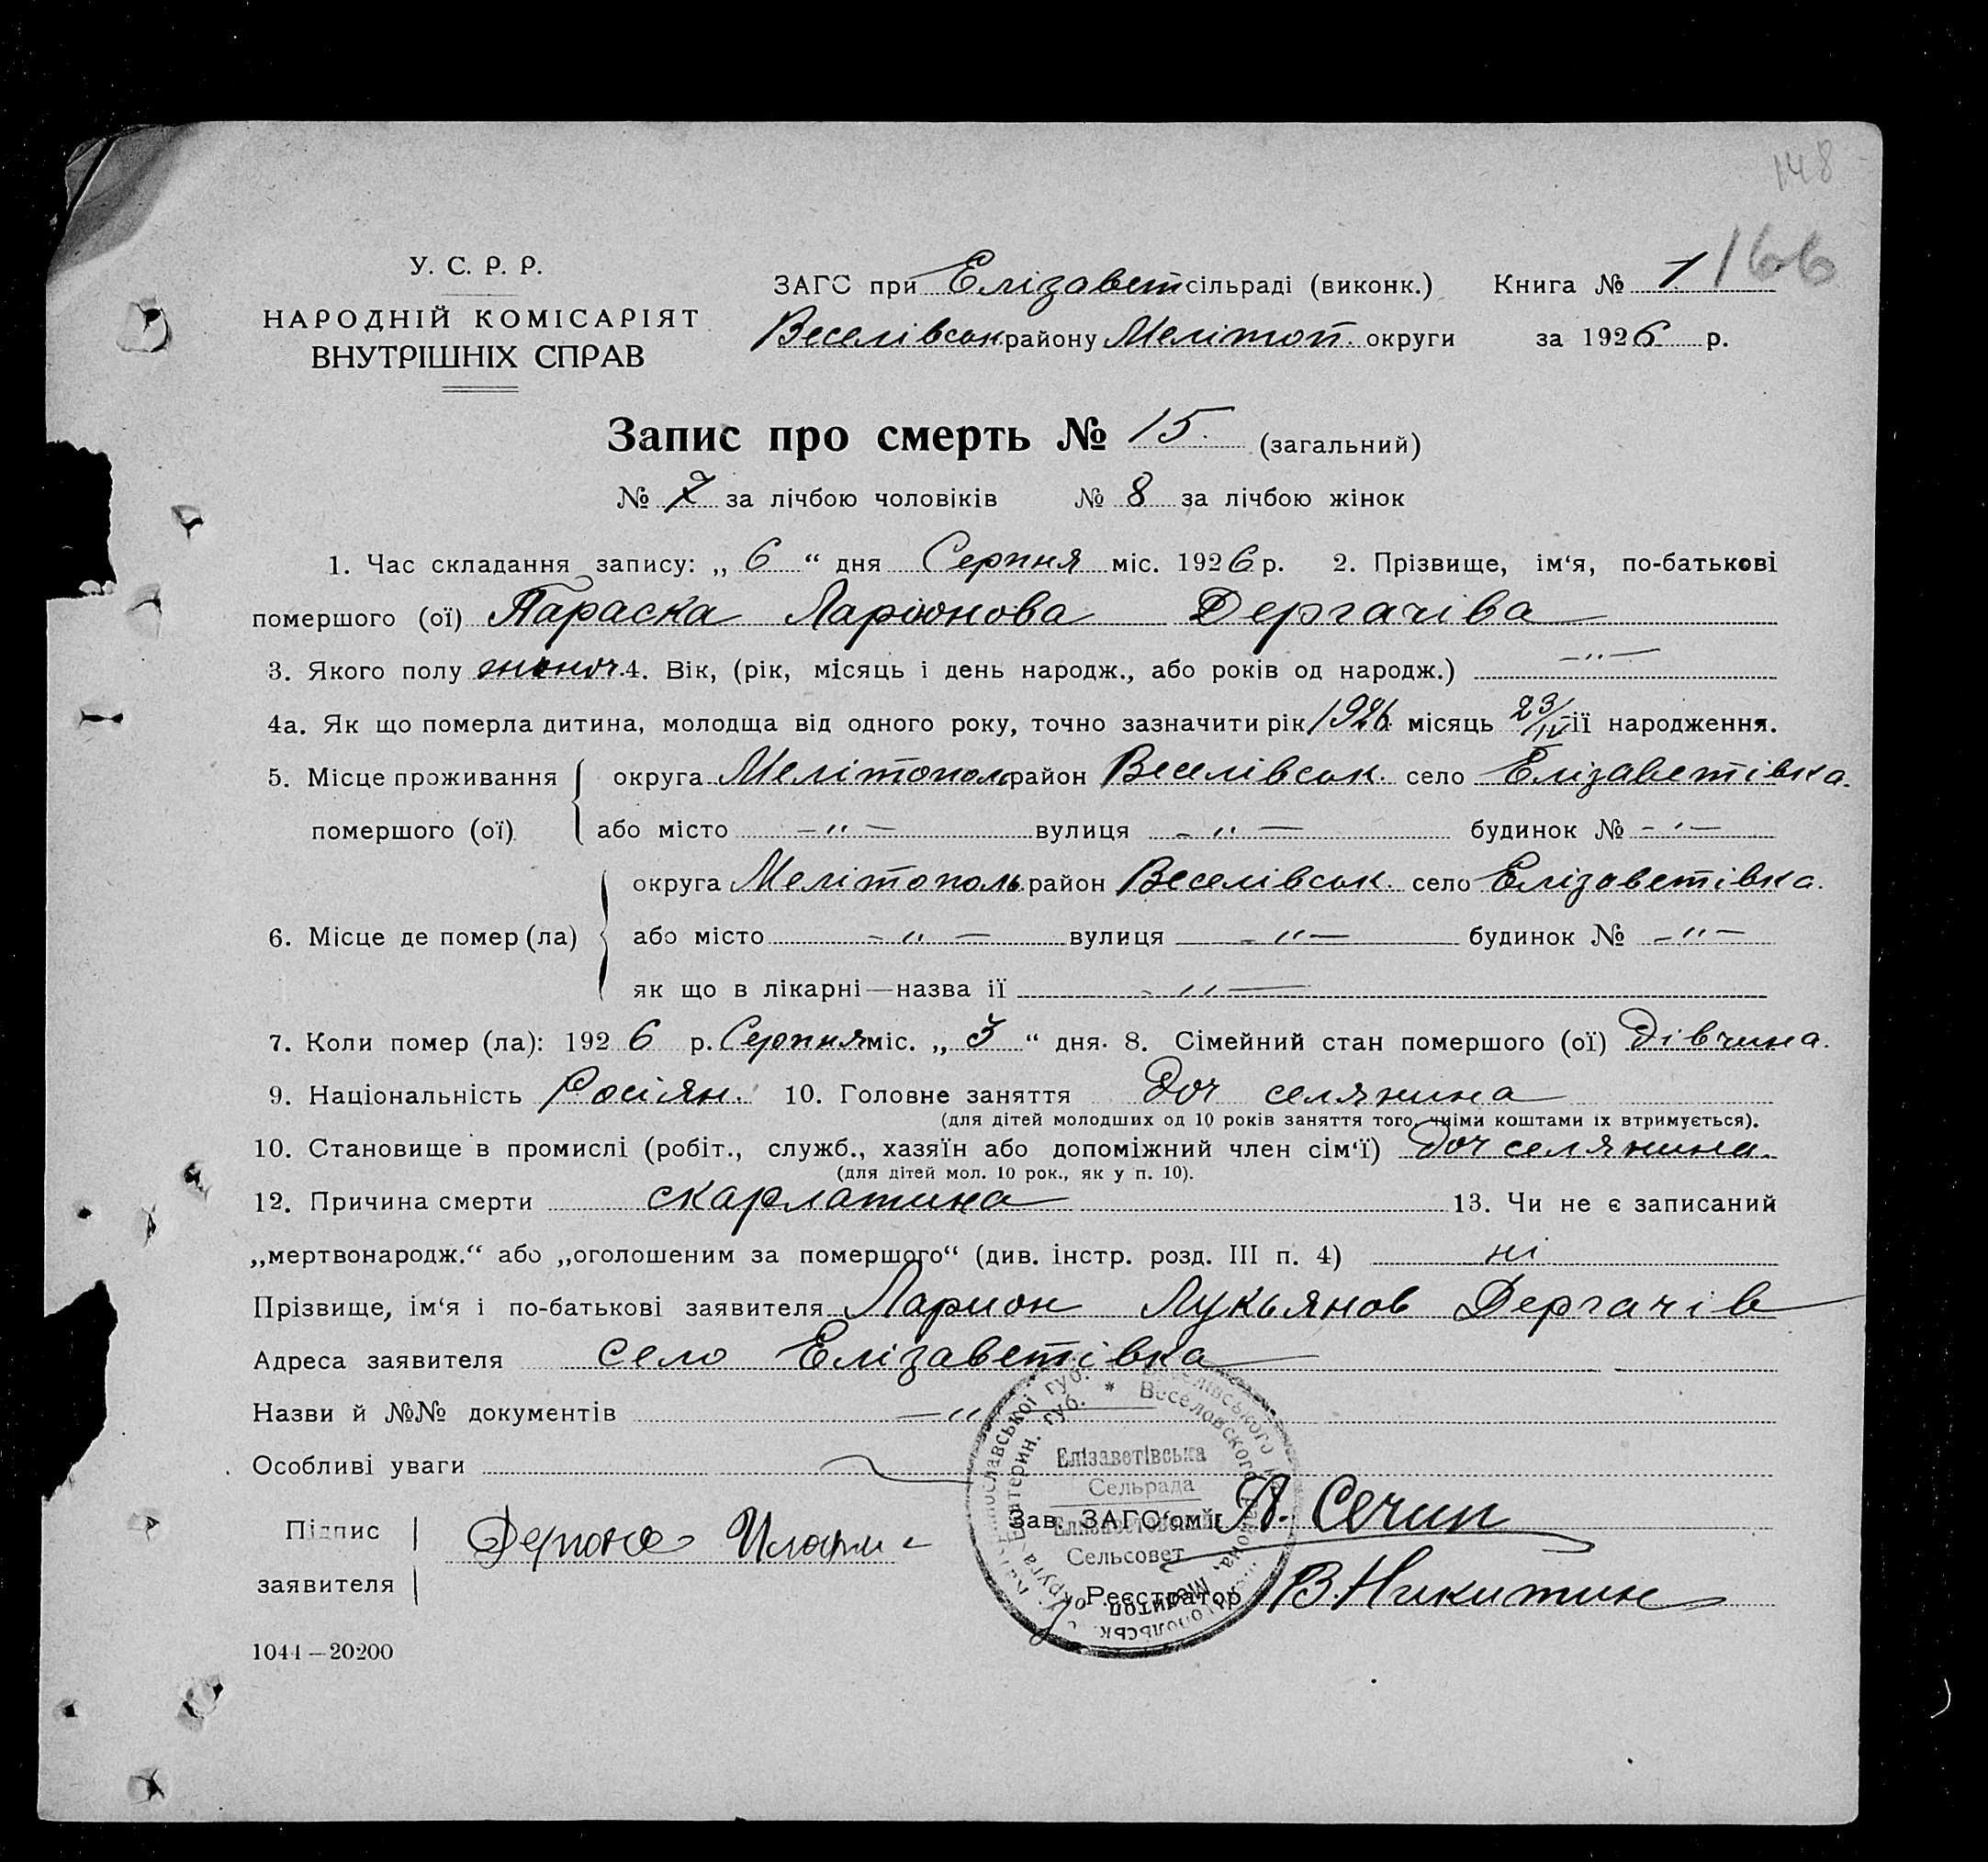 148
166
У. С. Р. Р.
НАРОДНІЙ КОМІСАРІЯТ
ВНУТРІШНІХ СПРАВ
ЗАГС при Елізавет сільраді (виконк.) Книга № 1
Веселівськ району Мелітоп. округи за 1926 р.
Запис про смерть № 15. (загальний)
№ 7 за лічбою чоловіків № 8 за лічбою жінок
1. Час складання запису: „ 6 “ дня Серпня міс. 1926 р. 2. Прізвище, ім‘я, по-батькові
помершого (ої) Параска Ларіонова Дергачіва
3. Якого полу жіноч. 4. Вік, (рік, місяць і день народж., або років од народж.) —"—
4а. Як що померла дитина, молодща від одного року, точно зазначити рік 1926 місяць 23/IV її народження.
5. Місце проживання округа Мелітополь район Веселівськ. село Елізаветівка.
помершого (ої) або місто —"— вулиця —"— будинок № —"—
округа Мелітополь район Веселівськ. село Елізаветівка.
6. Місце де помер (ла) або місто —"— вулиця —"— будинок № —"—
як що в лікарні—назва її —"—
7. Коли помер (ла): 1926 р. Серпня міс. „ 3 “ дня. 8. Сімейний стан помершого (ої) дівчина.
9. Національність Росіян. 10. Головне заняття доч селянина
(для дітей молодших од 10 років заняття того, чиїми коштами їх втримується).
10. Становище в промислі (робіт., служб., хазяїн або допоміжний член сім‘ї) доч селянина.
(для дітей мол. 10 рок., як у п. 10).
12. Причина смерти скарлатина 13. Чи не є записаний
„мертвонародж.“ або „оголошеним за помершого“ (див. інстр. розд. III п. 4) ні
Прізвище, ім‘я і по-батькові заявителя Ларион Лукьянов Дергачів
Адреса заявителя село Елізаветівка
Назви й №№ документів —"—
Особливі уваги
Елізаветівська
Сельрада
Сельсовет
Підпис
заявителя
Зав. ЗАГС‘ом П. Сечин
Реєстратор В. Никитин
1044—20200